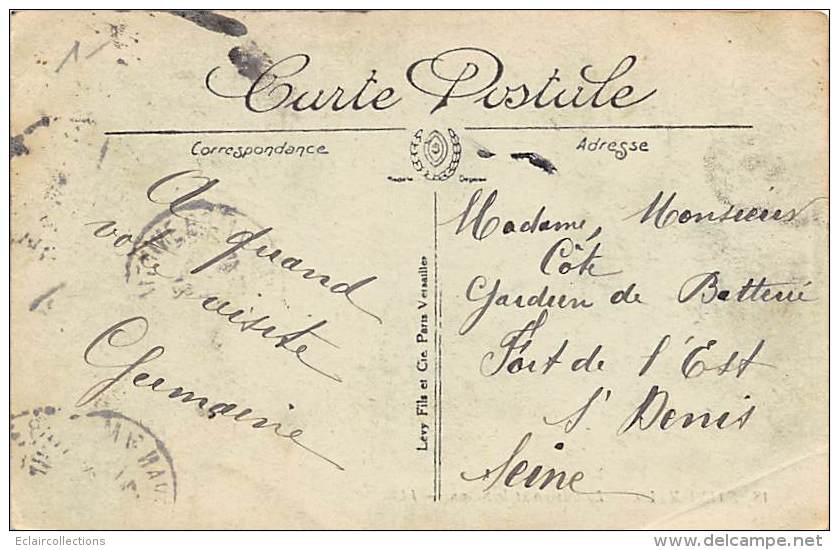 Carte Postale
Correspondance
Adresse
A quand
votre visite
Germaine
Levy Fils et Cie. Paris Versailles
Madame, Monsieur
Côte
Gardien de Batterie
Fort de l'Est
St Denis
Seine
Eclaircollections
www.delcampe.net